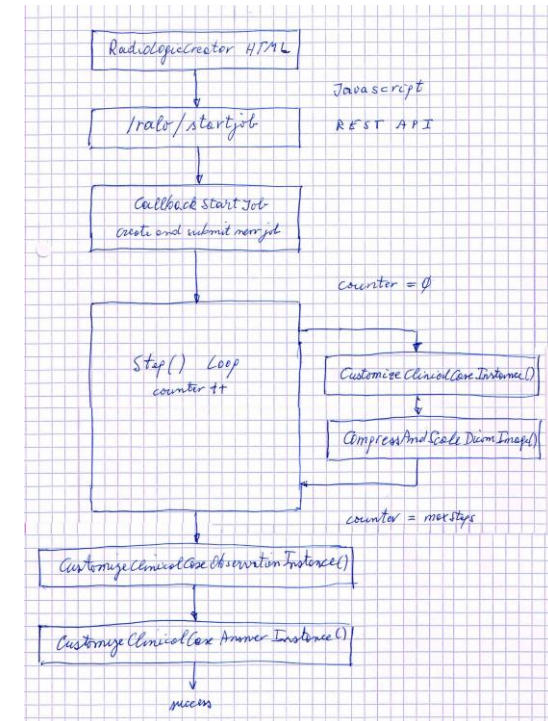 RadiologicCreator HTML
Javascript
/ralo/startjob
REST API
Callback Start Job
create and submit new job
counter = ϕ
Step() Loop
counter ++
CustomizeClinicalCaseInstance()
CompressAndScaleDicomImage()
counter = maxSteps
CustomizeClinicalCaseObservationInstance()
CustomizeClinicalCase Answer Instance()
success